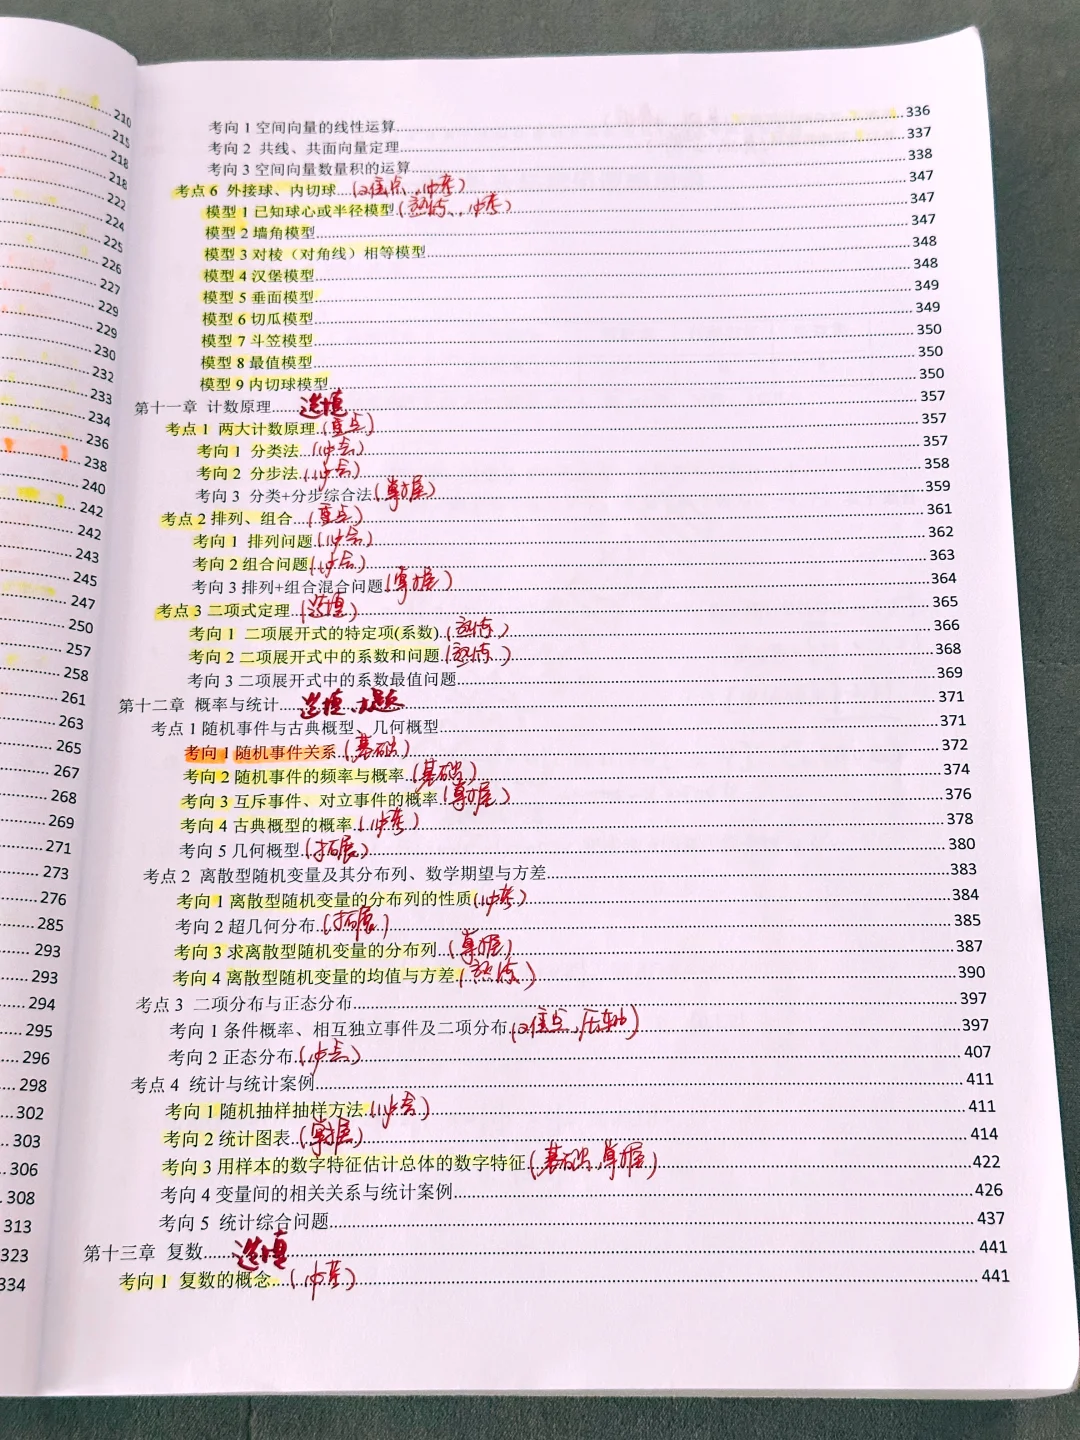 210
215
218
218
222
224
225
226
227
229
229
230
232
233
234
236
238
240
242
242
243
245
247
250
257
258
261
263
265
267
268
269
271
273
276
285
293
293
294
295
296
298
302
303
306
308
313
323
334
考向 1 空间向量的线性运算 336
考向 2 共线、共面向量定理 337
考向 3 空间向量数量积的运算 338
考点 6 外接球、内切球 347
模型 1 已知球心或半径模型 347
模型 2 墙角模型 347
模型 3 对棱（对角线）相等模型 348
模型 4 汉堡模型 348
模型 5 垂面模型 349
模型 6 切瓜模型 349
模型 7 斗笠模型 350
模型 8 最值模型 350
模型 9 内切球模型 350
第十一章 计数原理 选填 357
考点 1 两大计数原理 (重点) 357
考向 1 分类法 357
考向 2 分步法 358
考向 3 分类+分步综合法 (掌握) 359
考点 2 排列、组合 (重点) 361
考向 1 排列问题 362
考向 2 组合问题 363
考向 3 排列+组合混合问题 (掌握) 364
考点 3 二项式定理 (选填) 365
考向 1 二项展开式的特定项(系数) 366
考向 2 二项展开式中的系数和问题 368
考向 3 二项展开式中的系数最值问题 369
第十二章 概率与统计 选填、大题 371
考点 1 随机事件与古典概型、几何概型 371
考向 1 随机事件关系 (基础) 372
考向 2 随机事件的频率与概率 (基础) 374
考向 3 互斥事件、对立事件的概率 (掌握) 376
考向 4 古典概型的概率 (必考) 378
考向 5 几何概型 (拓展) 380
考点 2 离散型随机变量及其分布列、数学期望与方差 383
考向 1 离散型随机变量的分布列的性质 (必考) 384
考向 2 超几何分布 (拓展) 385
考向 3 求离散型随机变量的分布列 (掌握) 387
考向 4 离散型随机变量的均值与方差 390
考点 3 二项分布与正态分布 397
考向 1 条件概率、相互独立事件及二项分布 397
考向 2 正态分布 407
考点 4 统计与统计案例 411
考向 1 随机抽样抽样方法 411
考向 2 统计图表 (掌握) 414
考向 3 用样本的数字特征估计总体的数字特征 (基础、掌握) 422
考向 4 变量间的相关关系与统计案例 426
考向 5 统计综合问题 437
第十三章 复数 选填 441
考向 1 复数的概念 (必考) 441